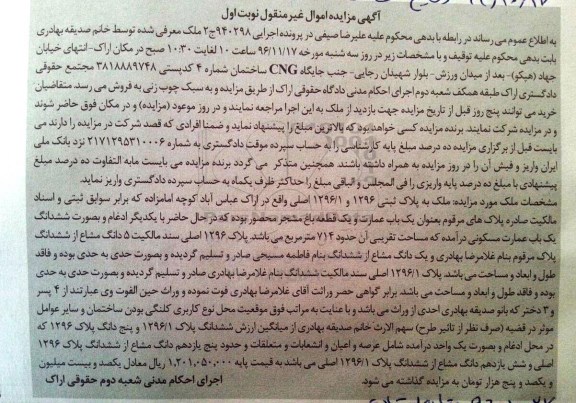 آگهی مزایده اموال غیر منقول نوبت اول
به اطلاع عموم می رساند در رابطه با بدهی محکوم علیه علیرضا صیفی در پرونده اجرایی ۹۴۰۲۹۸ج۲ ملک معرفی شده توسط خانم صدیقه بهادری
بابت بدهی محکوم علیه توقیف و با مشخصات زیر در روز سه شنبه مورخه ۹۶/۱۱/۱۷ ساعت ۱۰ لغایت ۱۰:۳۰ صبح در مکان اراک-انتهای خیابان
جهاد (هپکو)- بعد از میدان ورزش- بلوار شهیدان رجایی- جنب جایگاه CNG ساختمان شماره ۴ کدپستی ۳۸۱۸۸۸۹۷۴۸ مجتمع حقوقی
دادگستری اراک طبقه همکف شعبه دوم اجرای احکام مدنی دادگاه حقوقی اراک از طریق مزایده و به سبک چوب زنی به فروش می رسد. متقاضیان
خرید می توانند پنج روز قبل از تاریخ مزایده جهت بازدید از ملک به این اجرا مراجعه نمایند و در روز موعود (مزایده) و در مکان فوق حاضر شوند
و در مزایده شرکت نمایند. برنده مزایده کسی خواهد بود که بالاترین مبلغ را پیشنهاد نماید و ضمنا افرادی که قصد شرکت در مزایده را دارند می
بایست قبل از برگزاری مزایده ده درصد مبلغ پایه کارشناسی را به حساب سپرده موقت دادگستری به شماره ۲۱۷۱۲۹۵۳۱۰۰۰۶ نزد بانک ملی
ایران واریز و فیش آن را در روز مزایده به همراه داشته باشند. همچنین متذکر می گردد برنده مزایده می بایست مابه التفاوت ده درصد مبلغ
پیشنهادی با مبلغ ده درصد پایه واریزی را فی المجلس و الباقی مبلغ را حداکثر ظرف یکماه به حساب سپرده دادگستری واریز نماید.
مشخصات ملک مورد مزایده: ملک به پلاک ثبتی ۱۲۹۶ و ۱۲۹۶/۱ اصلی واقع در اراک عباس آباد کوچه امامزاده که برابر سوابق ثبتی و اسناد
مالکیت صادره پلاک های مرقوم بعنوان یک باب عمارت و یک قطعه باغ مشجر محصور بوده که در حال حاضر با یکدیگر ادغام و بصورت ششدانگ
یک باب عمارت مسکونی درآمده که مساحت تقریبی آن حدود ۷۱۴ مترمربع می باشد. پلاک ۱۲۹۶ اصلی سند مالکیت ۵ دانگ مشاع از ششدانگ
پلاک مرقوم بنام غلامرضا بهادری و یک دانگ مشاع از ششدانگ بنام فاطمه مسیحی صادر و تسلیم گردیده و بصورت حدی به حدی بوده و فاقد
طول و ابعاد و مساحت می باشد. پلاک ۱۲۹۶/۱ اصلی سند مالکیت ششدانگ بنام غلامرضا بهادری صادر و تسلیم گردیده و بصورت حدی به حدی
بوده و فاقد طول و ابعاد و مساحت می باشد. برابر گواهی حصر وراثت آقای غلامرضا بهادری فوت نموده و وراث حین الفوت وی عبارتند از ۴ پسر
و ۳ دختر که بانو صدیقه بهادری احدی از وراث می باشد و با عنایت به مراتب فوق موقعیت محل نوع کاربری کلنگی بودن ساختمان و سایر عوامل
موثر در قضیه (صرف نظر از تاثیر طرح) سهم الارث خانم صدیقه بهادری از میانگین ارزش ششدانگ پلاک ۱۲۹۶/۱ و پنج دانگ پلاک ۱۲۹۶ که
در محل ادغام و بصورت یک واحد درآمده شامل عرصه و اعیان و انشعابات و متعلقات و حدود پنج یازدهم دانگ مشاع از ششدانگ پلاک ۱۲۹۶
اصلی و شش یازدهم دانگ مشاع از ششدانگ پلاک ۱۲۹۶/۱ اصلی می باشد به قیمت پایه ۱,۲۰۱,۰۵۰,۰۰۰ ریال معادل یکصد و بیست میلیون
و یکصد و پنج هزار تومان به مزایده گذاشته می شود.
اجرای احکام مدنی شعبه دوم حقوقی اراک